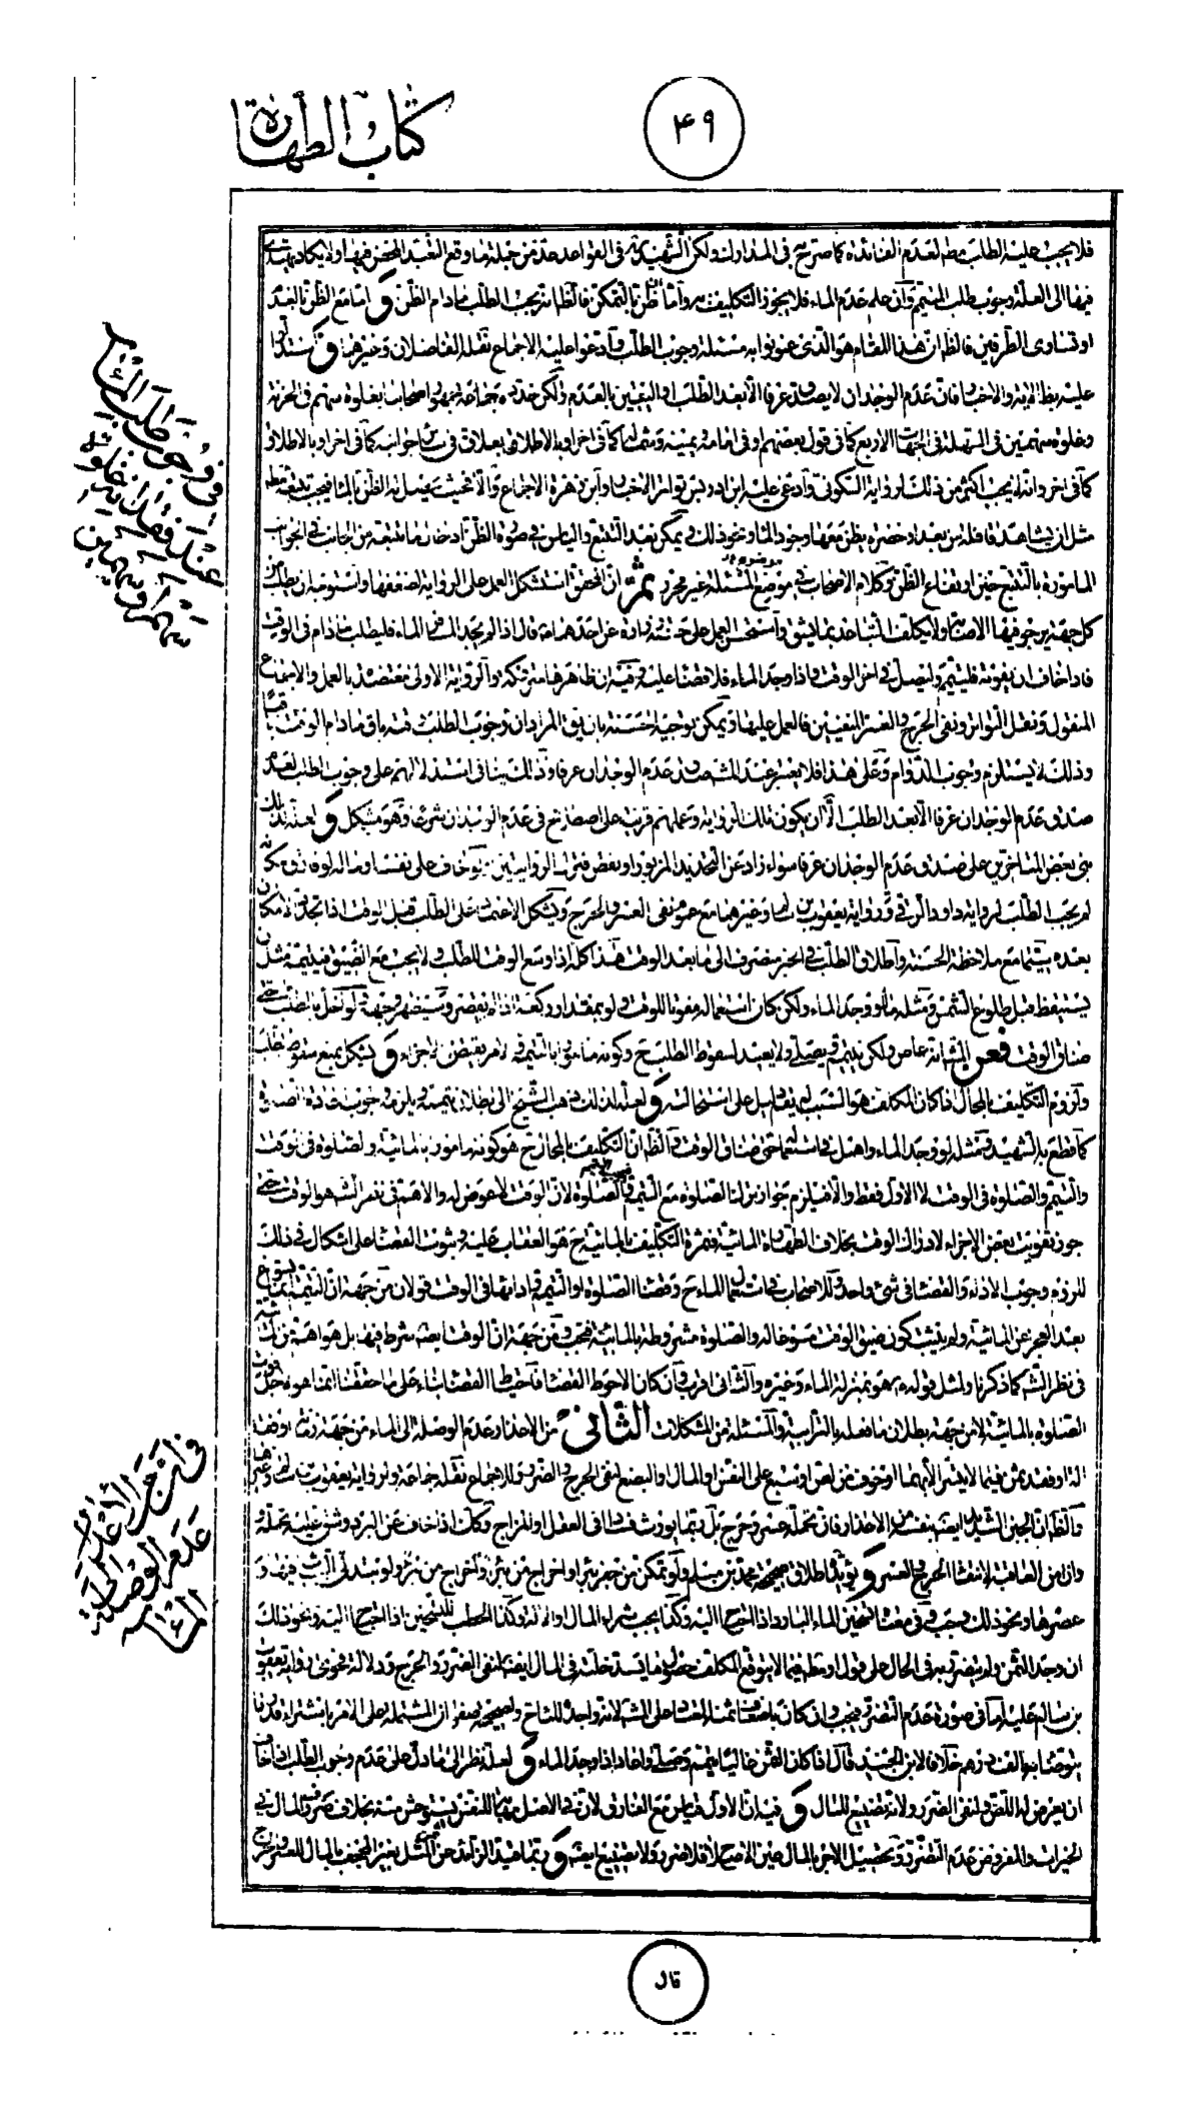 كتاب الطهارة
٤٩
فلا يجب عليه الطلب مط لعدم الفائدة كما صرح في المدارك ولكن الشهيد ره في القواعد عد من جملة ما وقع التعبد المحض فيها ولا يكاد يهتدى
فيها الى العلة وجوب طلب المتيمم وان علم عدم الماء فلا يجوز التكليف به واما ظن التمكن فالظ انه يجب الطلب مادام الظن و اما مع الظن بالعدم
او تساوى الطرفين فالظ ان هذا المقام هو الذى عنونوا به مسئلة وجوب الطلب وادعوا عليه الاجماع نقله الفاضلان وغيرهما و استدل
عليه بظ الاية والاخبار فان عدم الوجدان لا يصدق عرفا الا بعد الطلب او اليقين بالعدم ولكن حده جماعة منهم اصحابنا بغلوة سهم في الحزنة
وغلوة سهمين في السهلة في الجهات الاربع كما في قول بعضهم او في امامه ويمينه وشماله كما في اخر او بالاطلاق في ساير جوانبه كما في اخر او بالاطلاق
كما في اخر وانه لا يجب اكثر من ذلك لرواية السكونى وادعى عليه ابن ادريس تواتر الاخبار وابن زهرة الاجماع والا بحيث يحصل له الظن بالماء فيجب تتبعه مط
مثل ان يشاهد قافلة من بعد او خضرة يظن معها وجود الماء ونحو ذلك ويمكن بعد التتبع في صورة الظن ادخال ما تتبعه من الجانب في الجوانب
المامورة بالتتبع حين ارتفاع الظن وكلام الاصحاب في موضع المسئلة غير محرر ثم ان المحقق استشكل العمل على الرواية لضعفها واستوجه ان يطلب من
كل جهة يرجو فيها الاصابة ولا يكلف التباعد بما يشق واستحسن العمل على حسنة زرارة عن احدهما ع قال اذا لم يجد المسافر الماء فليطلب مادام في الوقت
فاذا خاف ان يفوته فليتيمم وليصل في اخر الوقت فاذا وجد الماء فلا قضاء عليه وفيه ان ظاهرها متروكة والرواية الاولى معتضدة بالعمل والاجماع
المنقول ونقل التواتر ونفى الحرج والعسر المنفيين فالعمل عليها ويمكن توجيه الحسنة بان يق المراد ان وجوب الطلب شانه باق مادام الوقت باقيا
وذلك لا يستلزم وجوب الدوام وعلى هذا فلا يعتبر عند المشهور صدق عدم الوجدان عرفا وذلك ينافى استدلالهم على وجوب الطلب بعدم
صدق عدم الوجدان عرفا الا بعد الطلب الا ان يكون تلك الرواية وعملهم قرينة على اصطلاح في عدم الوجدان شرعا وهو مشكل و لعله لذلك
بنى بعض المتاخرين على صدق عدم الوجدان عرفا سواء زاد عن التحديد المزبور او نقص لو خاف على نفسه او ماله لو فارق مكانه
لم يجب الطلب لرواية داود الرقى ورواية يعقوب بن سالم وغيرهما مع عموم نفى العسر والحرج ويشكل الاعتماد على الطلب قبل الوقت اذا تجدد الامكان
بعده سيما مع ملاحظة الحسنة واطلاق الطلب في الخبر منصرف الى ما بعد الوقت هذا كله اذا وسع الوقت للطلب ولا يجب مع الضيق فيتيمم مثل ان
يستيقظ قبل طلوع الشمس ومثله ما لو وجد الماء ولكن كان استعماله مفوتا للوقت ولو بمقدار ركعة ولو اخل بالطلب حتى
ضاق الوقت فعن المشهور انه عاص ولكن يتيمم ويصلى ولا يعيد لسقوط الطلب ح وكونه مامورا بالتيمم والامر يقتضى الاجزاء و يشكل بمنع سقوط الطلب
ولزوم التكليف بالمحال اذا كان المكلف هو السبب لم يقم دليل على استحالته و لعله لذلك ذهب الشيخ الى بطلان تيممه ويلزمه وجوب اعادة الصلوة
كما قطع به الشهيد ومثله لو وجد الماء واهمل في استعماله حتى ضاق الوقت والظ ان التكليف المجازى ح هو كونه مامورا بالمائية والصلوة في الوقت
والتيمم والصلوة في الوقت لا الاول فقط والا فيلزم جواز ترك الصلوة مع التيمم في الصلوة لان الوقت لا عوض له والاهم في نظر الشارع هو الوقت حتى
جوز تفويت بعض الاجزاء لادراك الوقت بخلاف الطهارة المائية فثمرة التكليف بالمائية ح هو العقاب عليه وثبوت القضاء على اشكال في ذلك
للزوم وجوب الاداء والقضاء في شئ واحد وللاصحاب في استعمال الماء ح وقضاء الصلوة او التيمم وادائها في الوقت قولان من جهة ان التيمم انما يسوغ
بعد العجز عن المائية ولم يثبت كون ضيق الوقت مسوغا له والصلوة مشروطة بالمائية فتجب ومن جهة ان الوقت ايضا شرط فيها بل هو اهم من الشرائط
في نظر الشارع كما ذكرنا ولمثل قوله ع هو بمنزلة الماء وغيره والثانى اقرب وان كان الاحوط القضاء فاحتياط القضاء بناء على ما حققنا انما هو لاجل فوت
الصلوة بالمائية لا من جهة بطلان ما فعله بالترابية والمسئلة من المشكلات الثانى من الاعذار عدم الوصلة الى الماء من جهة زمانة او فقد
الة او فقد ثمن فيما لا يتيسر الا بهما او خوف من لص او سبع على النفس او المال او البضع لنفى الحرج والضرر وللاجماع نقله جماعة ولرواية يعقوب بن سالم وغيرها
والظ ان الجبن الشديد ايضا بنفسه من الاعذار فان تحمله عسر وحرج بل ربما يورث فسادا في العقل او المزاج وكذا اذا خاف عن البرد وشق عليه تحمله
وان امن العاقبة لانتفاء الحرج والعسر و يؤيده اطلاق صحيحة محمد بن مسلم ولو تمكن من حفر بئر او اخراج من بئر او اخراج من نهر ولو بتدلى الثياب فيها و
عصرها ونحو ذلك وجب وفي معناه تسخين الماء البارد اذا احتيج اليه وكذا يجب شراء الماء او الالة وكذا الحطب للتسخين اذا احتيج اليه ونحو ذلك
ان وجد الثمن ولم يتضرر به في الحال على قول او مط فيما لا يتوقع المكلف حصول ما يسد خلته في المال ايضا لنفى الضرر والحرج ودلالة فحوى رواية يعقوب
بن سالم عليه اما في صورة عدم التضرر فيجب وان كان باضعاف ثمنه المعتاد على المشهور لانه واجد للماء ح ولصحيحة صفوان المشتملة على الامر باشتراء قدر ما
يتوضا به بالف درهم خلافا لابن الجنيد قال اذا كان الثمن غاليا تيمم وصلى واعاد اذا وجد الماء و لعله نظر الى ما دل على عدم وجوب الطلب اذا خاف
ان يعرض له اللص ولنفى الضرر ولانه تضييع للمال و فيه ان الاول قياس مع الفارق لان في الاصل مهانة للنفس يستوحش منه بخلاف صرف المال في
الخيرات والمفروض عدم التضرر وتحصيل الاجر بالمال حين الاحتياج لا ضرر ولا تضييع ايضا و ربما قيد الزائد عن المثل بغير المجحف بالمال للعسر والحرج
في وجوب طلب الماء
عند فقدانه غلوة
سهم او سهمين
في ان من جملة الاعذار
عدم الوصلة الى
الماء
قال